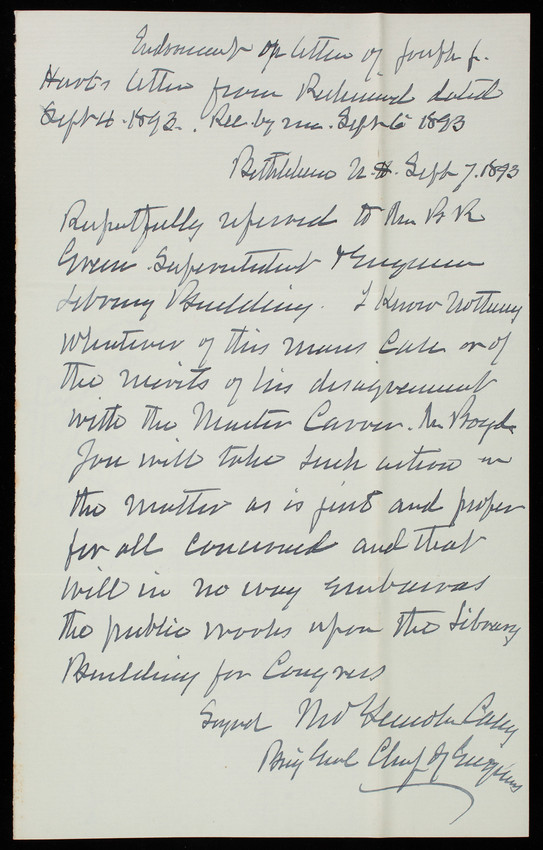 Endorsement on letter of Joseph J.
letter from Richmond dated
Sept 4. 1893. Rec. by me Sept 6 1893
Bethlehem N.H. Sept 7. 1893
Respectfully referred to Mr B R
Green Superintendent & Engineer
Library Building. I know nothing
whatever of this mans case or of
the merits of his disagreement
with the Master Carver. Mr Boyd
You will take such action in
the matter as is just and proper
for all concerned and that
will in no way embarrass
the public works upon the Library
Building for Congress
Signed Thos Lincoln Casey
Brig Genl Chief of Engineers